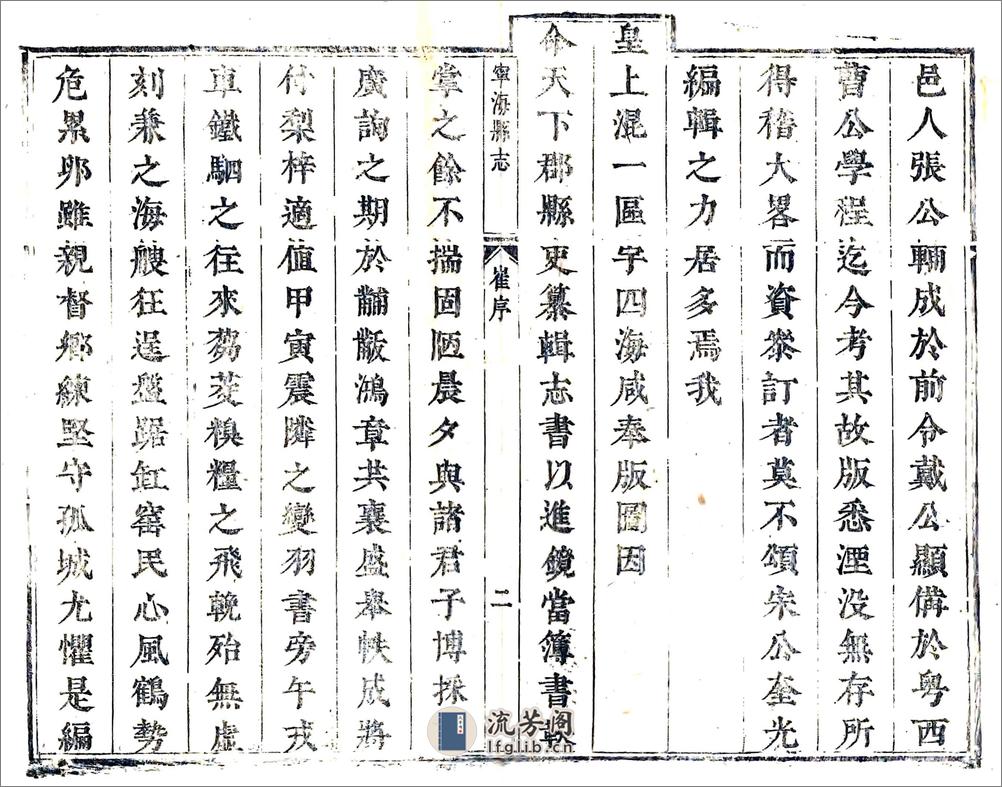 邑人張公輛成於前令戴公顯備於粤西
曹公學程迄今考其故版悉湮没無存所
得稽大畧而資叅訂者莫不頌宋公奎光
編輯之力居多焉我
皇上混一區宇四海咸奉版圖因
命天下郡縣更纂輯志書以進鏡當簿書鞅
寧海縣志
崔序
二
掌之餘不揣固陋晨夕與諸君子博採
廣詢之期於黼黻鴻章共襄盛舉帙成將
付梨梓適值甲寅震隣之變羽書旁午戎
車鐵駟之往來芻茭糗糧之飛輓殆無虚
刻兼之海艘狂逞盤踞缸窰民心風鶴勢
危累卵雖親督鄉練堅守孤城尤懼是編
流芳阁
lfglib.cn